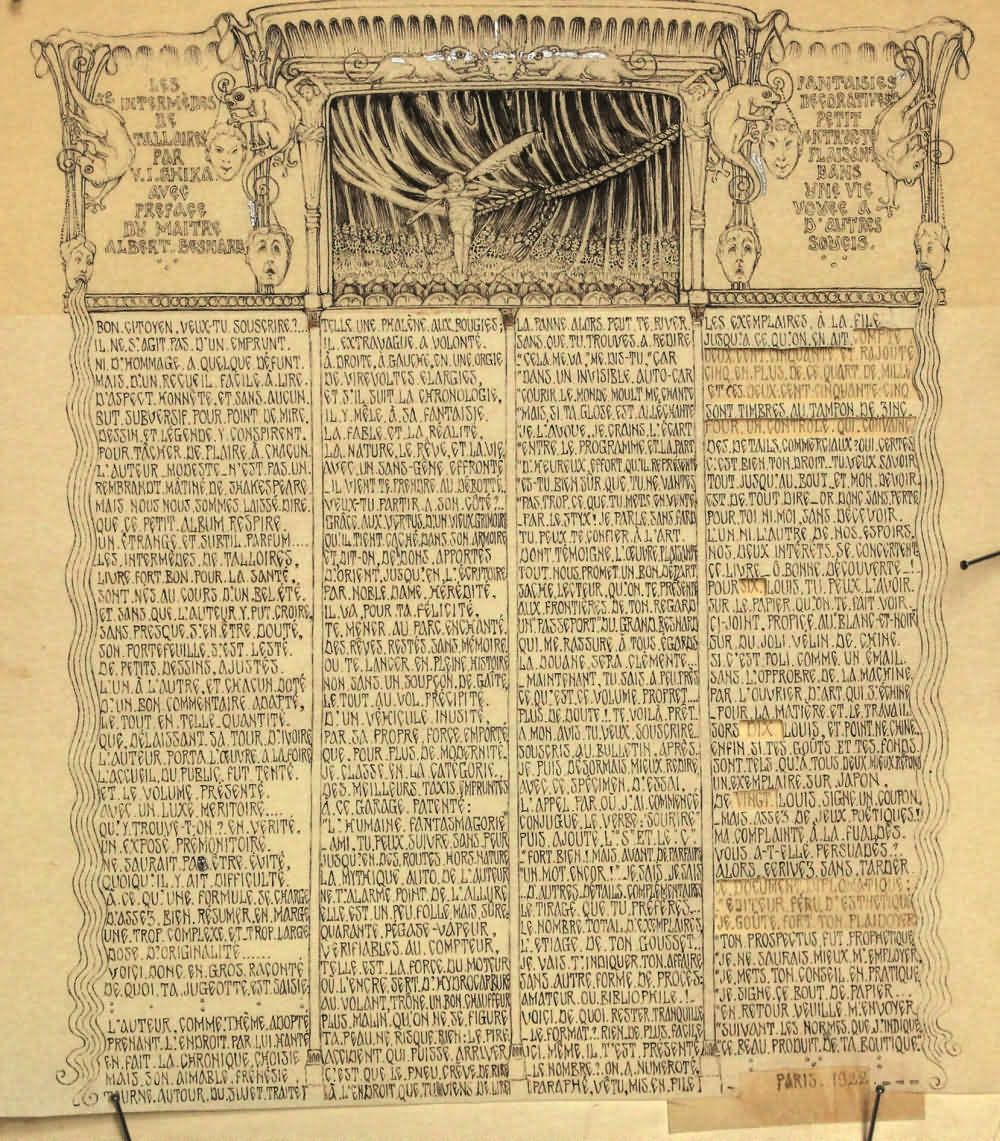 LES
INTERMÈDES
DE
TALLOIRES
PAR
V.I.
AVEC
PREFACE
DU MAITRE
ALBERT. BESNARD.
FANTAISIES
DECORATIVES
PETIT
ENTR'ACTE
PLAISANT
DANS
UNE VIE
VOUÉE A
D'AUTRES
SOUCIS.
BON. CITOYEN. VEUX-TU SOUSCRIRE?...
IL. NE. S'AGIT. PAS. D'UN. EMPRUNT.
NI. D'HOMMAGE. A QUELQUE. DÉFUNT.
MAIS. D'UN. RECUEIL. FACILE. À. LIRE.
D'ASPECT. HONNÊTE. ET. SANS. AUCUN.
BUT. SUBVERSIF. POUR. POINT. DE. MIRE.
DESSIN. ET. LÉGENDE. Y. CONSPIRENT.
POUR. TÂCHER. DE. PLAIRE. À. CHACUN.
L'AUTEUR. MODESTE. N'EST. PAS. UN.
REMBRANDT. MÂTINÉ. DE. SHAKESPEARE.
MAIS. NOUS. NOUS. SOMMES. LAISSÉ. DIRE.
QUE. CE. PETIT. ALBUM. RESPIRE.
UN. ÉTRANGE. ET. SUBTIL. PARFUM....
LES. INTERMÈDES. DE. TALLOIRES,
LIVRE. FORT. BON. POUR. LA. SANTÉ.
SONT. NÉS. AU. COURS. D'UN. BEL. ÉTÉ.
ET. SANS. QUE. L'AUTEUR. Y. PUT. CROIRE,
SANS. PRESQUE. S'EN. ÊTRE. DOUTÉ,
SON. PORTEFEUILLE. S'EST. LESTÉ.
DE. PETITS. DESSINS. AJUSTÉS.
L'UN. À. L'AUTRE. ET. CHACUN. DOTÉ
D'UN. BON. COMMENTAIRE. ADAPTÉ,
LE. TOUT. EN. TELLE. QUANTITÉ.
QUE. DÉLAISSANT. SA. TOUR. D'IVOIRE
L'AUTEUR. PORTA. L'ŒUVRE. A. LA. FOIRE
L'ACCUEIL. DU. PUBLIC. FUT. TENTÉ.
ET. LE. VOLUME. PRÉSENTÉ.
AVEC. UN. LUXE. MÉRITOIRE....
QU'Y. TROUVE-T-ON? EN. VÉRITÉ.
UN. EXPOSÉ. PRÉMONITOIRE.
NE. SAURAIT. PAS. ÊTRE. ÉVITÉ.
QUOIQU'IL. Y. AIT. DIFFICULTÉ.
À. CE. QU'UNE. FORMULE. SE. CHARGE
D'ASSEZ. BIEN. RÉSUMER. EN. MARGE
UNE. TROP. COMPLEXE. ET. TROP. LARGE
DOSE. D'ORIGINALITÉ......
VOICI. DONC. EN. GROS. RACONTÉ
DE. QUOI. TA. JUGEOTTE. EST. SAISIE.
L'AUTEUR. COMME. THÈME. ADOPTÉ
PRENANT. L'ENDROIT. PAR. LUI. HANTÉ
EN. FAIT. LA. CHRONIQUE. CHOISIE
MAIS. SON. AIMABLE. FRÉNÉSIE
TOURNE. AUTOUR. DU. SUJET. TRAITÉ
TELLE. UNE. PHALÈNE. AUX. BOUGIES;
IL. EXTRAVAGUE. A. VOLONTÉ.
À. DROITE. À. GAUCHE. EN. UNE. ORGIE
DE. VIREVOLTES. ÉLARGIES,
ET. S'IL. SUIT. LA. CHRONOLOGIE,
IL. Y. MÊLE. À. SA. FANTAISIE.
LA. FABLE. ET. LA. RÉALITÉ.
LA. NATURE. LE. RÊVE. ET. LA. VIE
AVEC. UN. SANS-GÊNE. EFFRONTÉ
IL. VIENT. TE. PRENDRE. AU. DÉBOTTÉ.
VEUX-TU. PARTIR. A. SON. CÔTÉ?
GRÂCE. AUX. VERTUS. D'UN. VIEUX. GRIMOIRE
QU'IL. TIENT. CACHÉ. DANS. SON. ARMOIRE
ET. DIT-ON. DE. DONS. APPORTÉS
D'ORIENT. JUSQU'EN. L'ÉCRITOIRE
PAR. NOBLE. DAME. HÉRÉDITÉ.
IL. VA. POUR. TA. FÉLICITÉ.
TE. MENER. AU. PARC. ENCHANTÉ.
DES. RÊVES. RESTÉS. SANS. MÉMOIRE
OU. TE. LANCER. EN. PLEINE. HISTOIRE
NON. SANS. UN. SOUPÇON. DE. GAITÉ,
LE. TOUT. AU. VOL. PRÉCIPITÉ.
D'UN. VÉHICULE. INUSITÉ.
PAR. SA. PROPRE. FORCE. EMPORTÉ
QUE. POUR. PLUS. DE. MODERNITÉ.
JE. CLASSE. EN. LA. CATÉGORIE.
DES. MEILLEURS. TAXIS. EMPRUNTÉS
À. CE. GARAGE. PATENTÉ:
"L'HUMAINE. FANTASMAGORIE"
AMI. TU. PEUX. SUIVRE. SANS. PEUR
JUSQU'EN. DES. ROUTES. HORS. NATURE
LA. MYTHIQUE. AUTO. DE. L'AUTEUR
NE. T'ALARME. POINT. DE. L'ALLURE
ELLE. EST. UN. PEU. FOLLE. MAIS. SÛRE.
QUARANTE. PÉGASE-VAPEUR,
VÉRIFIABLES. AU. COMPTEUR,
TELLE. EST. LA. FORCE. DU. MOTEUR
OÙ. L'ENCRE. SERT. D'HYDROCARBURE
AU. VOLANT. TRÔNE. UN. BON. CHAUFFEUR
PLUS. MALIN. QU'ON. NE. SE. FIGURE
TA. PEAU. NE. RISQUE. RIEN: LE. PIRE
ACCIDENT. QUI. PUISSE. ARRIVER
C'EST. QUE. LE. PNEU. CRÈVE. DE. RIRE
À. L'ENDROIT. QUE. TU. VIENS. DE. LIRE!
LA. PANNE. ALORS. PEUT. TE. RIVER.
SANS. QUE. TU. TROUVES. A. REDIRE
"CELA. ME. VA." ME. DIS-TU. "CAR
"DANS. UN. INVISIBLE. AUTO-CAR
"COURIR. LE. MONDE. MOULT. ME. CHANTE
"MAIS. SI. TA. GLOSE. EST. ALLÉCHANTE
"JE. L'AVOUE. JE. CRAINS. L'ÉCART
"ENTRE. LE. PROGRAMME. ET. LA. PART
"D'HEUREUX. EFFORT. QU'IL. REPRÉSENTE
"ES-TU. BIEN. SUR. QUE. TU. NE. VANTES
"PAS. TROP. CE. QUE. TU. METS. EN. VENTE
PAR. LE. STYX! JE. PARLE. SANS. FARD
TU. PEUX. TE. CONFIER. À. L'ART.
DONT. TÉMOIGNE. L'ŒUVRE. PLAISANTE
TOUT. NOUS. PROMET. UN. BON. DÉPART
SACHE. LECTEUR. QU'ON. TE. PRÉSENTE
AUX. FRONTIÈRES. DE. TON. REGARD
UN. "PASSEPORT". DU. GRAND. BESNARD
QUI. ME. RASSURE. À. TOUS. ÉGARDS
LA. DOUANE. SERA. CLÉMENTE.
MAINTENANT. TU. SAIS. A. PEU. PRÈS
CE. QU'EST. CE. VOLUME. PROPRET....
PLUS. DE. DOUTE!. TE. VOILÀ. PRÊT.
A. MON. AVIS. TU. VEUX. SOUSCRIRE
SOUSCRIS. AU. BULLETIN. APRÈS.
JE. PUIS. DÉSORMAIS. MIEUX. REDIRE
AVEC. CE. SPÉCIMEN. D'ESSAI.
L'APPEL. PAR. OÙ. J'AI. COMMENCÉ
CONJUGUE. LE. VERBE: "SOURIRE"
PUIS. AJOUTE. L'"S". ET. LE. "C".
"FORT. BIEN! MAIS. AVANT. DE. PARFAIRE
"UN. MOT. ENCOR'!" JE. SAIS. JE. SAIS
D'AUTRES. DÉTAILS. COMPLÉMENTAIRES
LE. TIRAGE. QUE. TU. PRÉFÈRES...
LE. NOMBRE. TOTAL. D'EXEMPLAIRES.
L'ÉTIAGE. DE. TON. GOUSSET...
JE. VAIS. T'INDIQUER. TON. AFFAIRE
SANS. AUTRE. FORME. DE. PROCÈS:
AMATEUR. OU. BIBLIOPHILE!..
VOICI. DE. QUOI. RESTER. TRANQUILLE
LE. FORMAT?. RIEN. DE. PLUS. FACILE
ICI. MÊME. IL. T'EST. PRÉSENTÉ
LE. NOMBRE?. ON. A. NUMÉROTÉ.
PARAPHÉ. VÊTU. MIS. EN. FILE
LES. EXEMPLAIRES. À. LA. FILE
JUSQU'A. CE. QU'ON. EN. AIT. COMPTÉ
DEUX. CENT. CINQUANTE. ON. RAJOUTE
CINQ. EN. PLUS. DE. CE. QUART. DE. MILLE
ET. CES. DEUX. CENT. CINQUANTE. CINQ
SONT. TIMBRÉS. AU. TAMPON. DE. ZINC.
POUR. UN. CONTRÔLE. QUI. CONVAINC
DES. DÉTAILS. COMMERCIAUX? OUI. CERTES
C'EST. BIEN. TON. DROIT. TU. VEUX. SAVOIR
TOUT. JUSQU'AU. BOUT. ET. MON. DEVOIR
EST. DE. TOUT. DIRE_OR. DONC. SANS. PERTE
POUR. TOI. NI. MOI. SANS. DÉCEVOIR.
L'UN. NI. L'AUTRE. DE. NOS. ESPOIRS.
NOS. DEUX. INTÉRÊTS. SE. CONCERTENT
CE. LIVRE_Ô. BONNE. DÉCOUVERTE_!
POUR. SIX. LOUIS. TU. PEUX. L'AVOIR.
SUR. LE. PAPIER. QU'ON. TE. FAIT. VOIR.
CI-JOINT. PROPICE. AU. BLANC-ET-NOIR
SUR. DU. JOLI. VELIN. DE. CHINE.
SI. C'EST. POLI. COMME. UN. ÉMAIL.
SANS. L'OPPROBRE. DE. LA. MACHINE
PAR. L'OUVRIER. D'ART. QUI. S'ÉCHINE
POUR. LA. MATIÈRE. ET. LE. TRAVAIL
SORS. DIX. LOUIS. ET. POINT. NE. CHINE.
ENFIN. SI. TES. GOÛTS. ET. TES. FONDS.
SONT. TELS. QU'À. TOUS. DEUX. MIEUX. RÉPOND
UN. EXEMPLAIRE. SUR. JAPON.
DE. VINGT. LOUIS. SIGNE. UN. COUPON.
MAIS. ASSEZ. DE. JEUX. POÉTIQUES!
MA. COMPLAINTE. À. LA. FUALDÈS.
VOUS. A-T-ELLE. PERSUADÉS?
ALORS. ÉCRIVEZ. SANS. TARDER.
DOCUMENT. DIPLOMATIQUE:
"ÉDITEUR. FÉRU. D'ESTHÉTIQUE
"JE. GOÛTE. FORT. TON. PLAIDOYER
"TON. PROSPECTUS. FUT. PROPHÉTIQUE
"JE. NE. SAURAIS. MIEUX. M'EMPLOYER.
"JE. METS. TON. CONSEIL. EN. PRATIQUE
"JE. SIGNE. CE. BOUT. DE. PAPIER
"EN. RETOUR. VEUILLE. M'ENVOYER
"SUIVANT. LES. NORMES. QUE. J'INDIQUE
"CE. BEAU. PRODUIT. DE. TA. BOUTIQUE."
PARIS. 1922